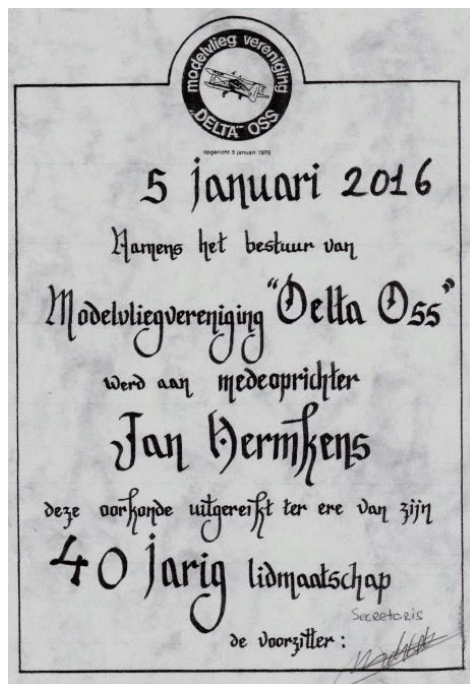 modelvlieg vereniging
"DELTA" OSS
opgericht 5 januari 1976
5 januari 2016
Namens het bestuur van
Modelvliegvereniging "Delta Oss"
werd aan medeoprichter
Jan Hermkens
deze oorkonde uitgereikt ter ere van zijn
40 jarig lidmaatschap
Secretaris
de voorzitter: